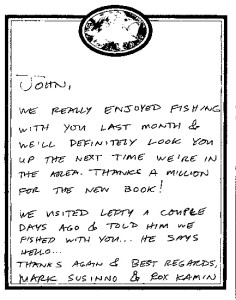 JOHN,
WE REALLY ENJOYED FISHING
WITH YOU LAST MONTH &
WE'LL DEFINITELY LOOK YOU
UP THE NEXT TIME WE'RE IN
THE AREA. THANKS A MILLION
FOR THE NEW BOOK!
WE VISITED LEFTY A COUPLE
DAYS AGO & TOLD HIM WE
FISHED WITH YOU... HE SAYS
HELLO...
THANKS AGAIN & BEST REGARDS,
MARK SUSINNO & ROX KAMIN